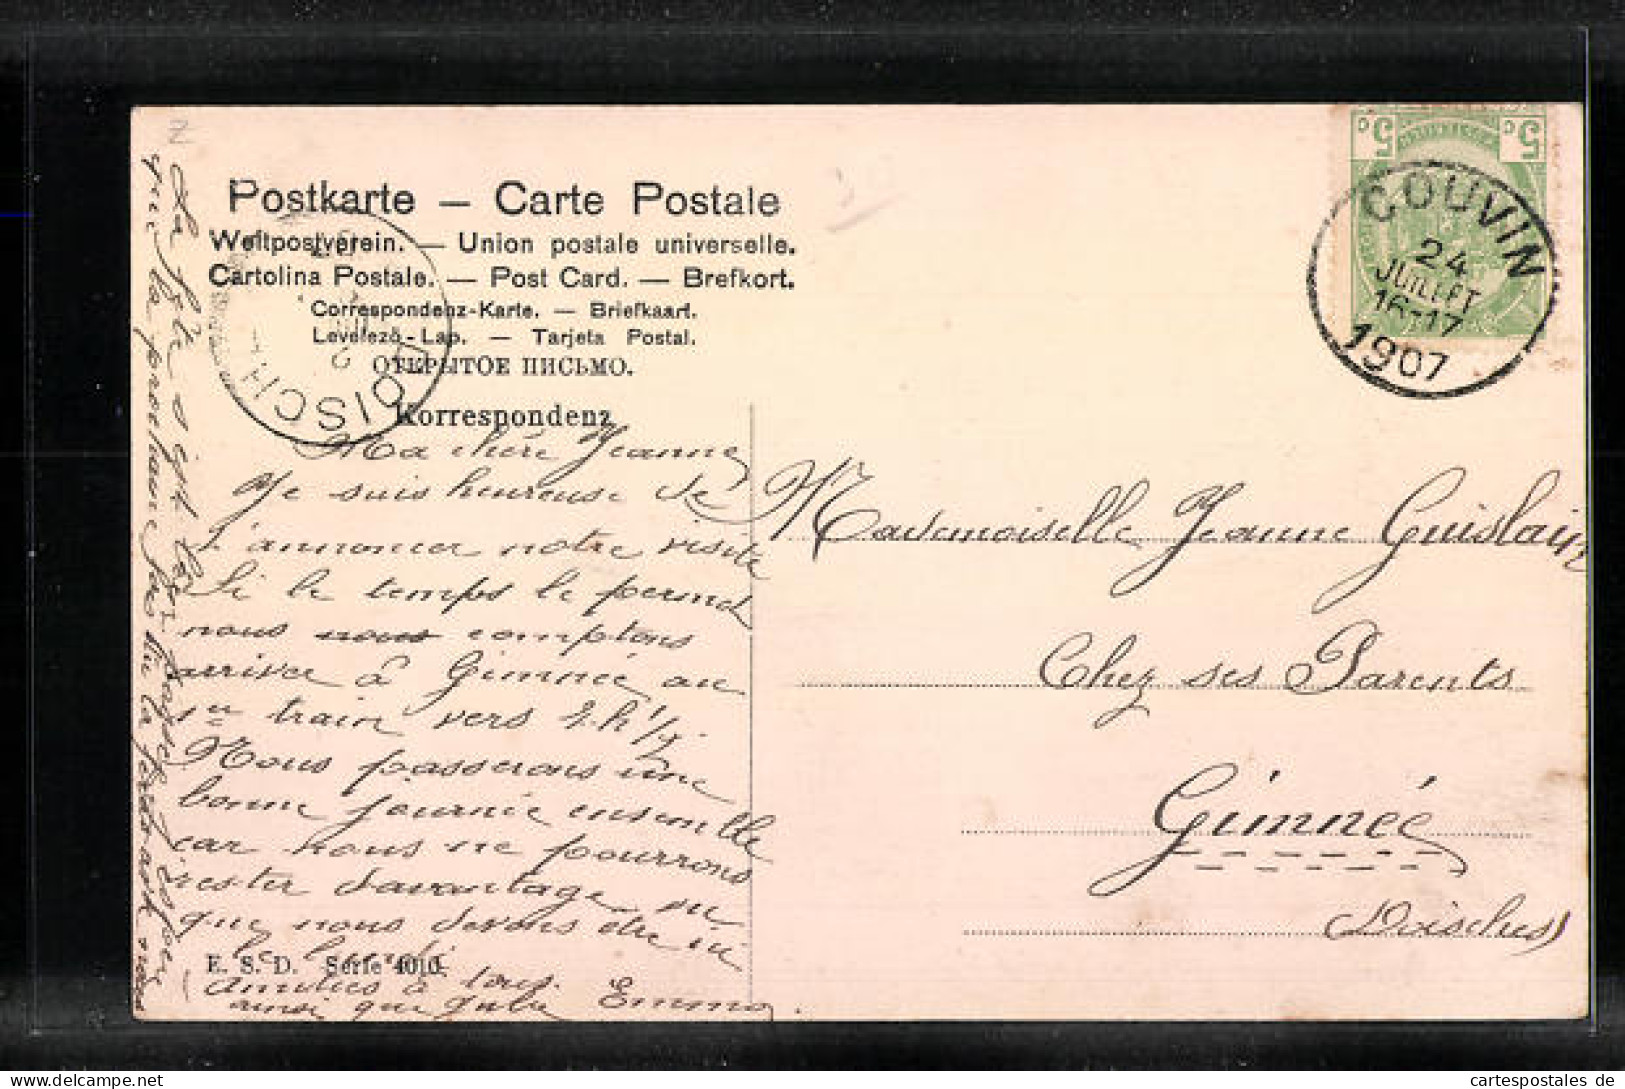 Postkarte – Carte Postale
Weltpostverein. — Union postale universelle.
Cartolina Postale. — Post Card. — Brefkort.
Correspondenz-Karte. — Briefkaart.
Levelező-Lap. — Tarjeta Postal.
ОТКРЫТОЕ ПИСЬМО.
Korrespondenz
5c 5c
COUVIN
24
JUILLET
16-17
1907
DOISCHE
Ma chère Jeanne
Je suis heureuse de
t'annoncer notre visite
Si le temps le permet
nous nous comptons
arriver à Gimnée au
1er train vers 2 h 1/2.
Nous passerons une
bonne journée ensemble
car nous ne pourrons
rester davantage vu
que nous devons être ici
le lundi
amitiés à tous.
ainsi que Emma.
E. S. D. Serie 4010.
la prochaine fois la
Mademoiselle Jeanne Guislain
Chez ses Parents
Gimnée
(Doische)
cartespostales de